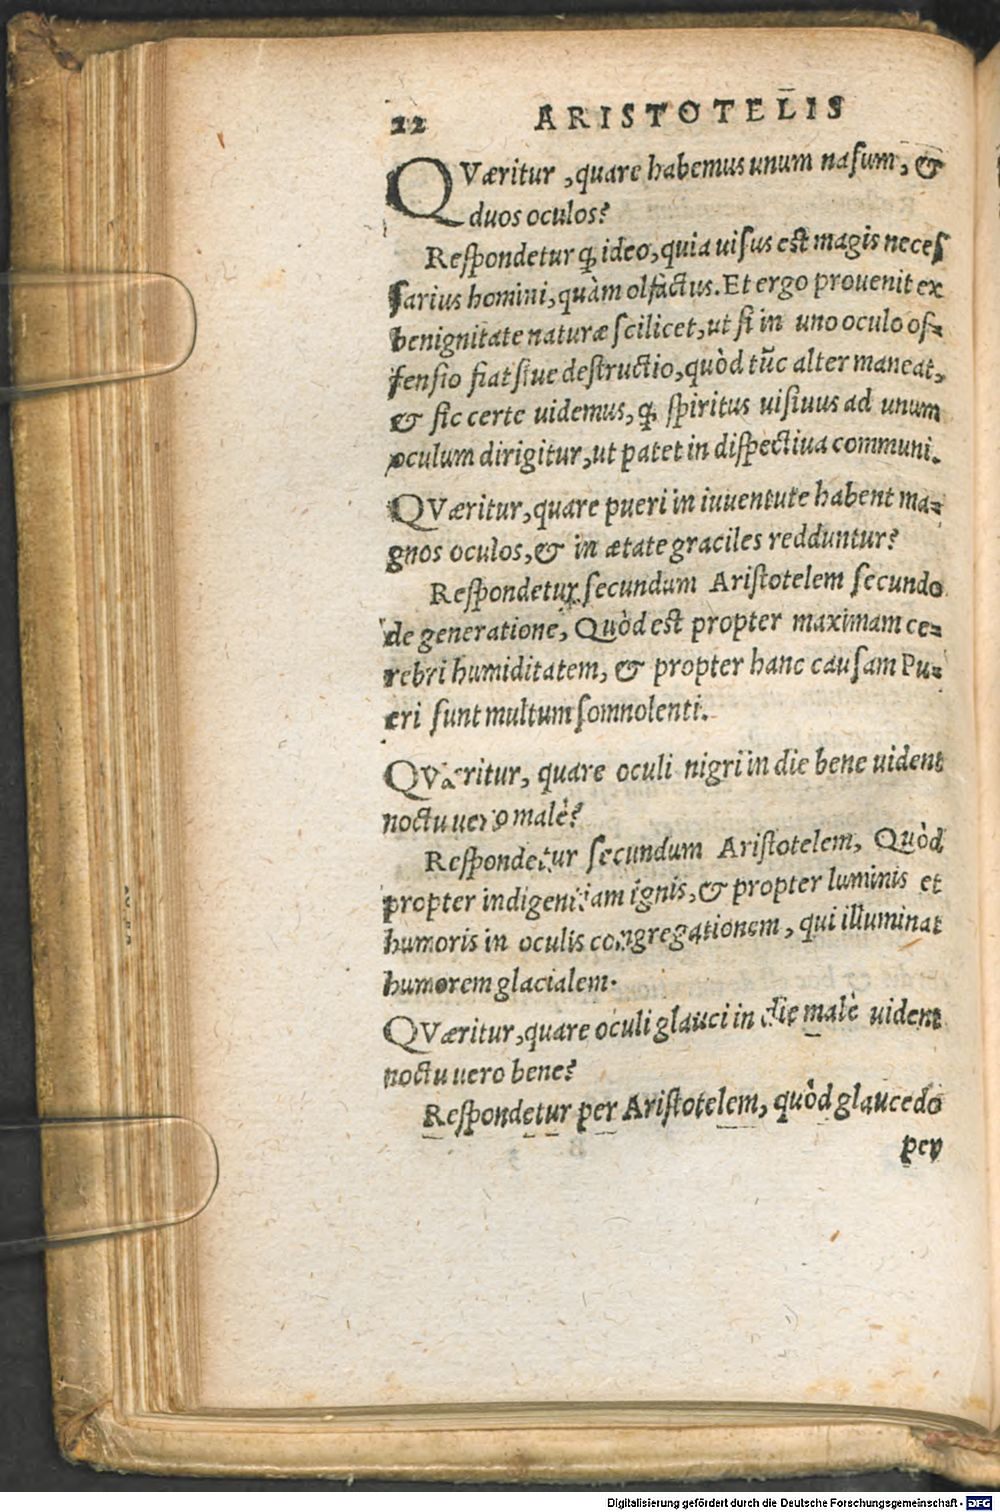 22 ARISTOTELIS
QVæritur, quare habemus unum nasum, &
duos oculos?
Respondetur ꝙ ideo, quia uisus est magis neces
sarius homini, quàm olfactus. Et ergo prouenit ex
benignitate naturæ scilicet, ut si in uno oculo of-
fensio fiat siue destructio, quòd tūc alter maneat,
& sic certe uidemus, ꝙ spiritus uisiuus ad unum
oculum dirigitur, ut patet in dispectiua communi.
QVæritur, quare pueri in iuuentute habent ma-
gnos oculos, & in ætate graciles redduntur?
Respondetur secundum Aristotelem secundo
de generatione, Quòd est propter maximam ce-
rebri humiditatem, & propter hanc causam Pu-
eri sunt multum somnolenti.
QVæritur, quare oculi nigri in die bene uident
noctu uero malè?
Respondetur secundum Aristotelem, Quòd
propter indigentiam ignis, & propter luminis et
humoris in oculis congregationem, qui illuminat
humorem glacialem.
QVæritur, quare oculi glauci in die malè uident
noctu uero bene?
Respondetur per Aristotelem, quòd glaucedo
per
Digitalisierung gefördert durch die Deutsche Forschungsgemeinschaft - DFG